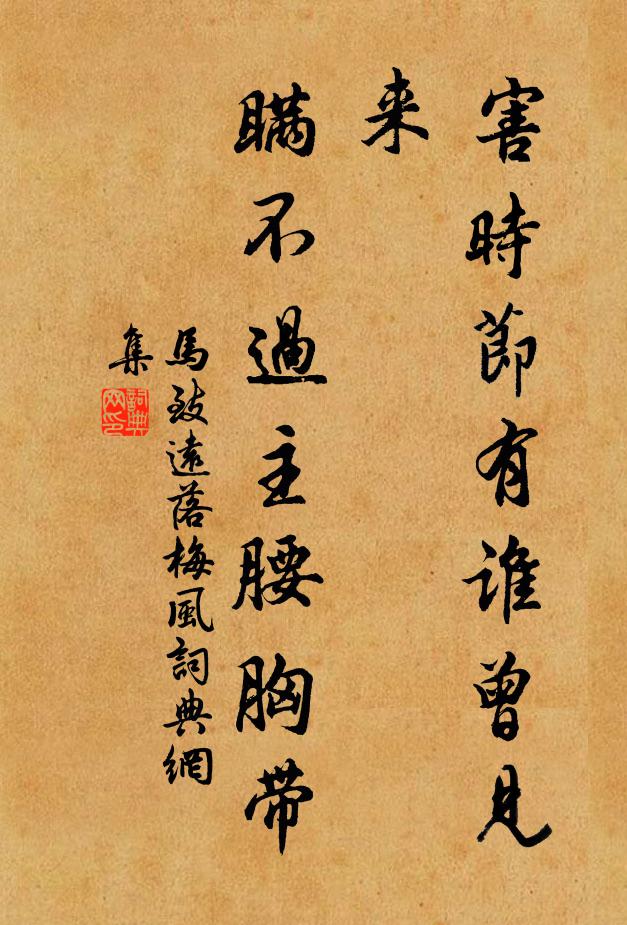 害時節有谁曾見
来
瞞不過主腰胸带
馬致遠落梅風詞典網
集
詞典
网印